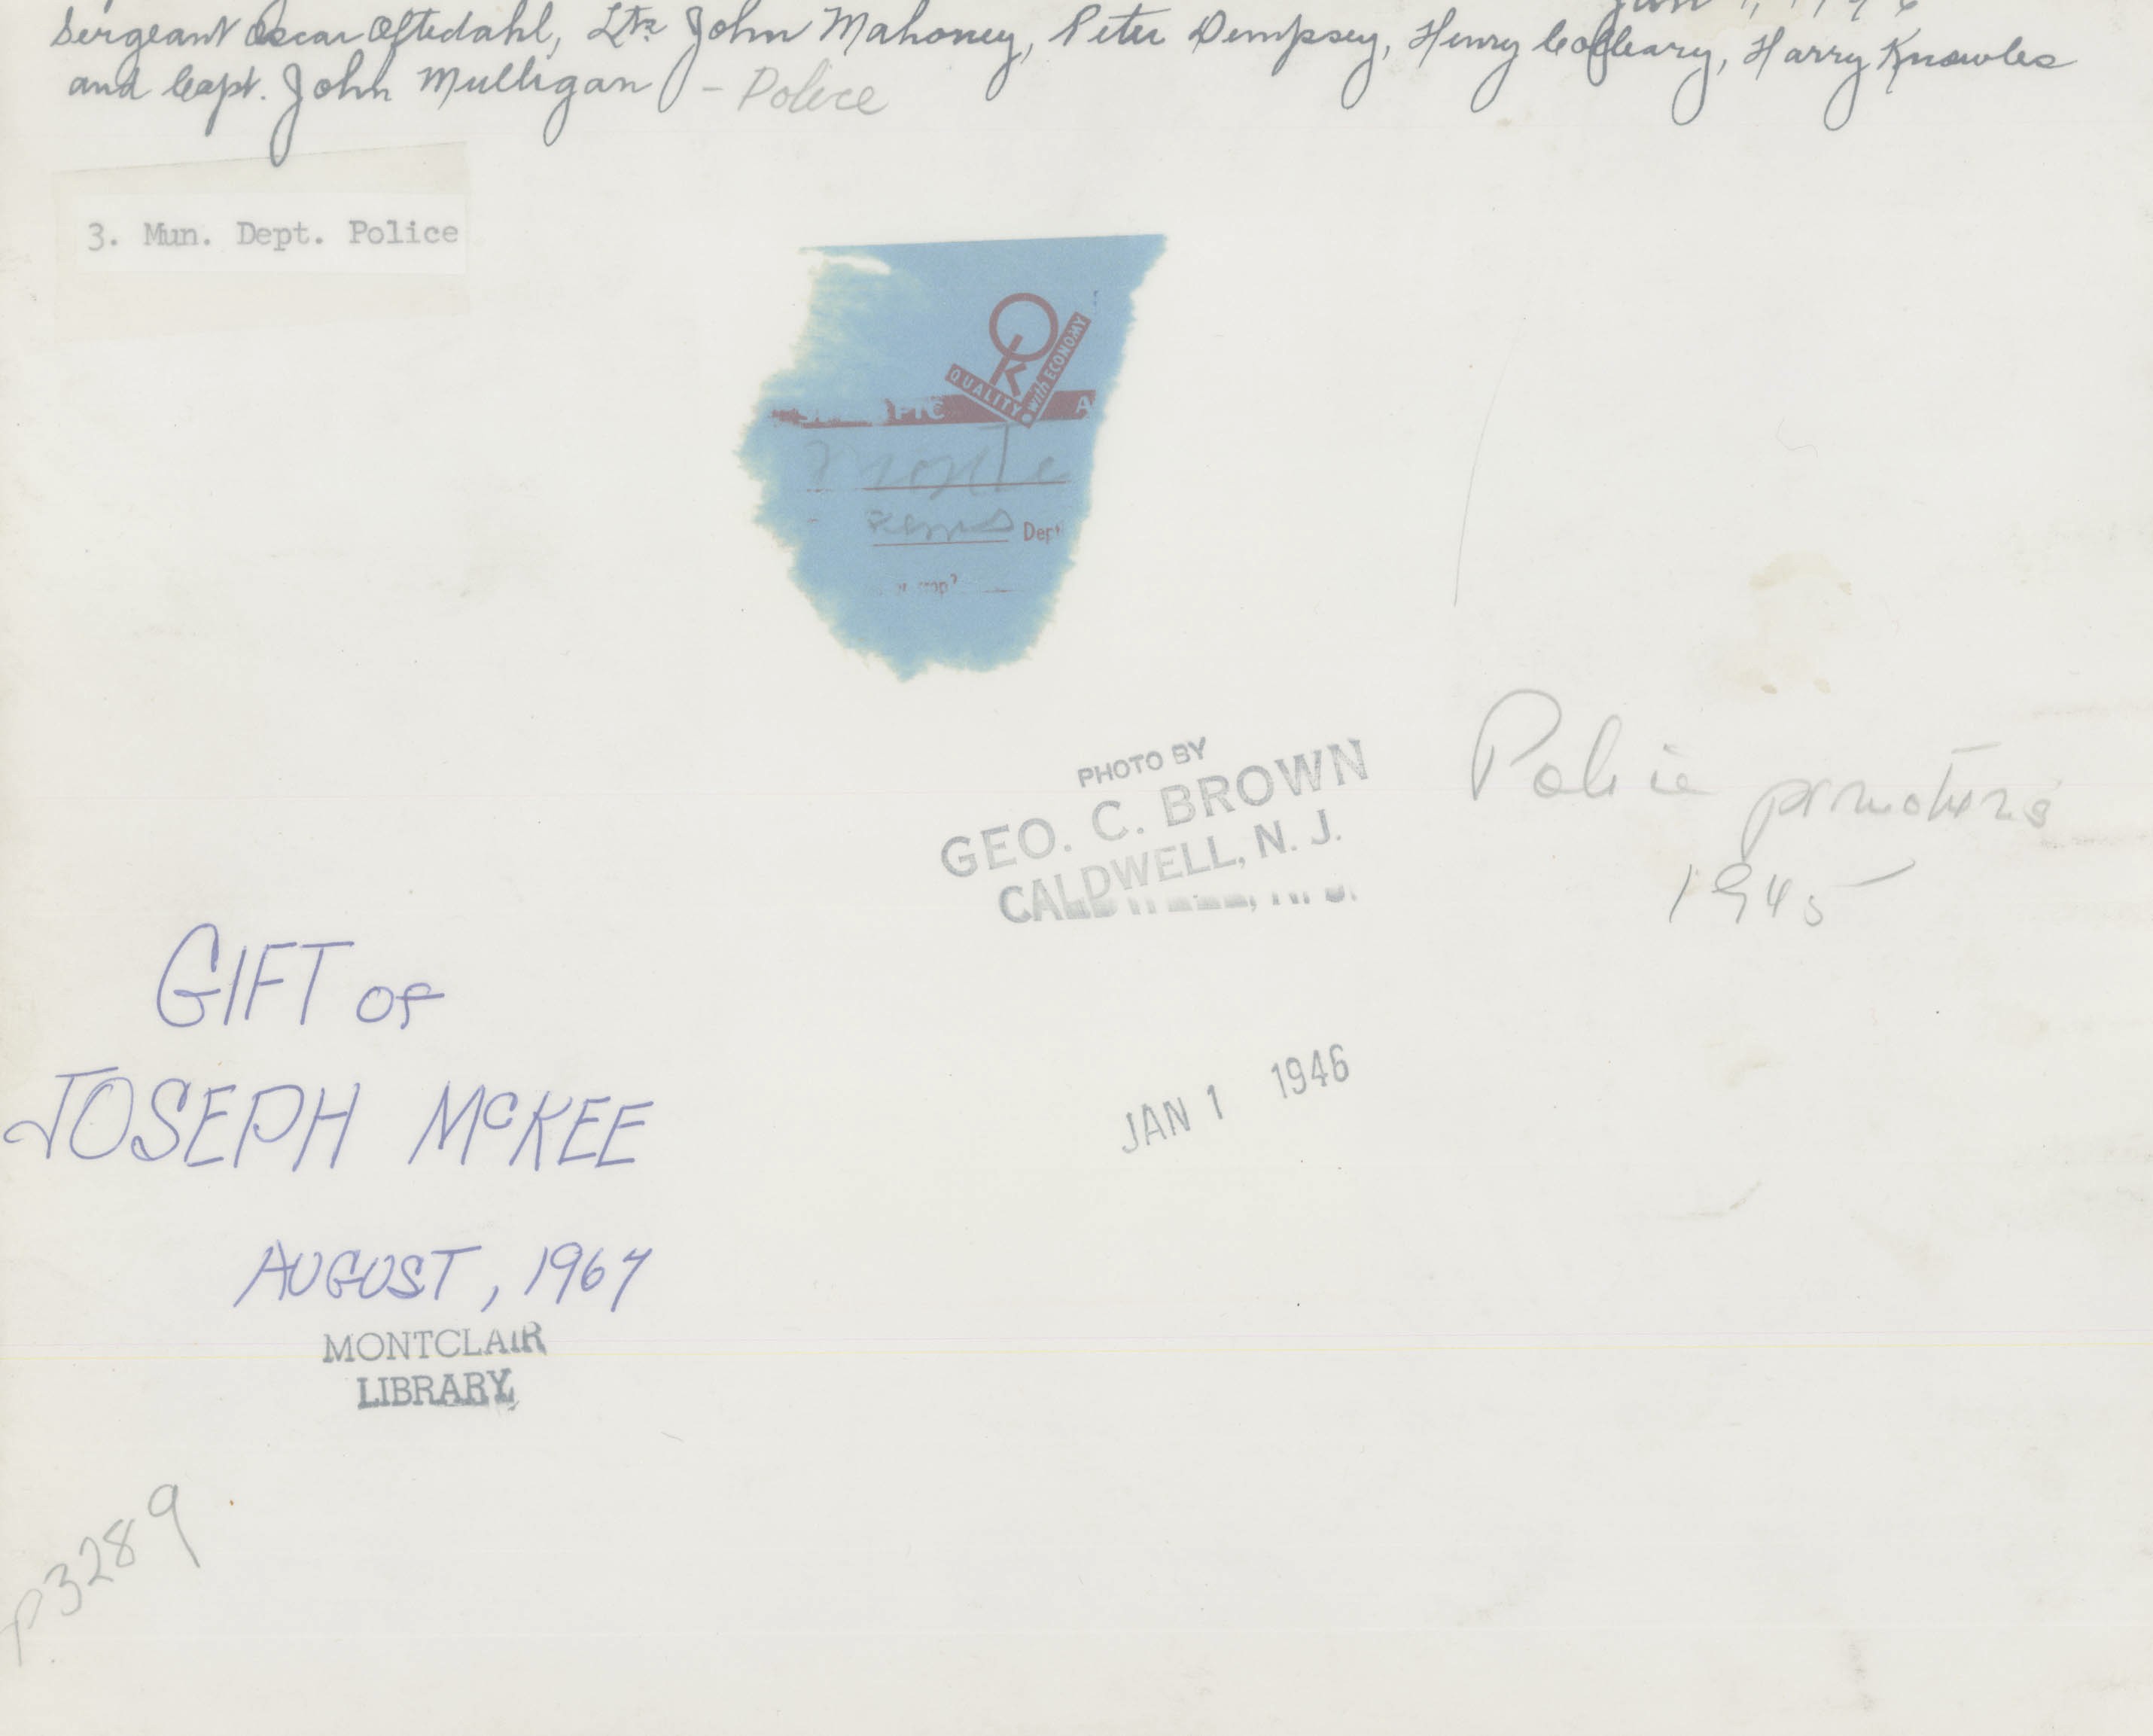 Sergeant Oscar Oftedahl, Lts John Mahoney, Peter Dempsey, Henry Harry Knowles
and Capt. John Mulligan - Police
3. Mun. Dept. Police
OK
QUALITY with ECONOMY
PIC A
Dept
crop?
PHOTO BY
GEO. C. BROWN
CALDWELL, N. J.
Police promotions
1945
GIFT OF
JOSEPH McKEE
AUGUST, 1967
MONTCLAIR
LIBRARY
JAN 1 1946
p3289